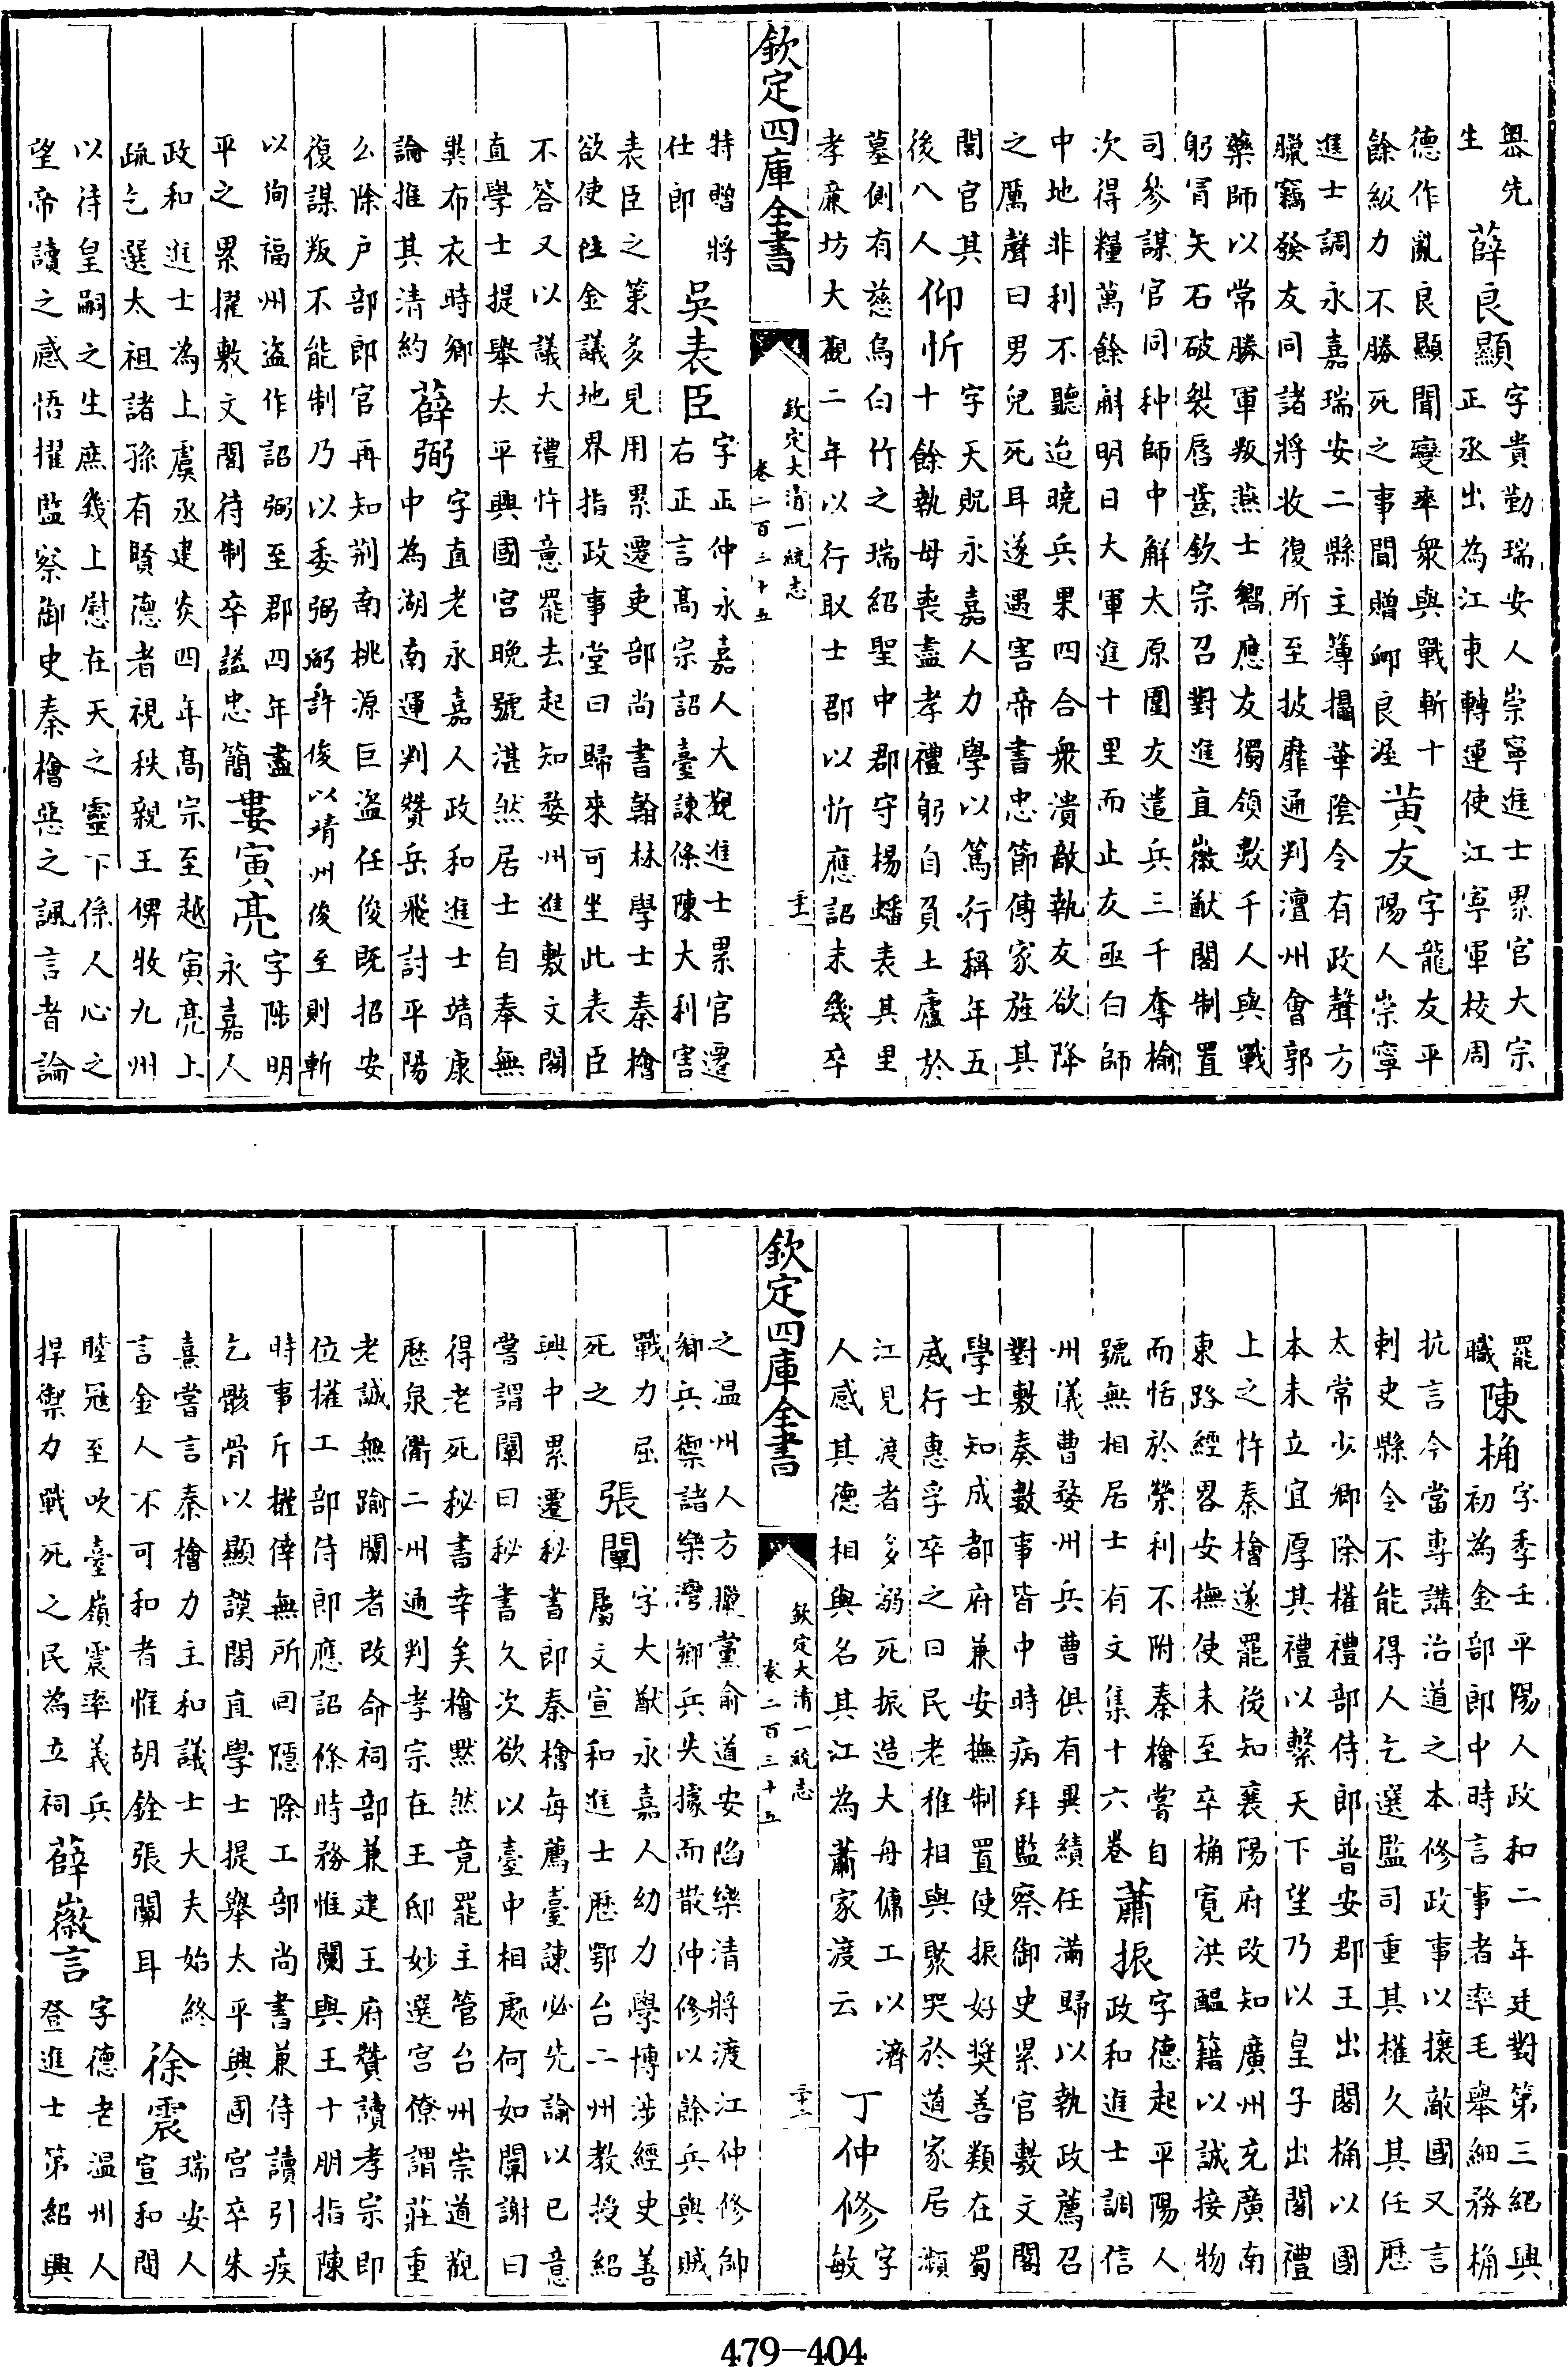 噐先
生
薛良顯
字貴勤瑞安人崇寧進士累官大宗
正丞出為江東轉運使江寧軍校周
德作亂良顯聞變率衆與戰斬十
餘級力不勝死之事聞贈卹良渥
黄友
字龍友平
陽人崇寧
進士調永嘉瑞安二縣主簿攝華陰令有政聲方
臘竊發友同諸將收復所至披靡通判澶州會郭
藥師以常勝軍叛燕士嚮應友獨領數千人與戰
躬冐矢石破裂唇齒欽宗召對進直徽猷閣制置
司參謀官同种師中解太原圍友遣兵三千奪榆
次得糧萬餘斛明日大軍進十里而止友亟白師
中地非利不聽迨曉兵果四合衆潰敵執友欲降
之厲聲曰男兒死耳遂遇害帝書忠節傳家旌其
閭官其
後八人
仰忻
字天貺永嘉人力學以篤行稱年五
十餘執母喪盡孝禮躬自負土廬於
墓側有慈烏白竹之瑞紹聖中郡守楊蟠表其里
孝廉坊大觀二年以行取士郡以忻應詔未幾卒
欽定四庫全書
欽定大清一統志
卷二百三十五
特贈將
仕郎
吳表臣
字正仲永嘉人大觀進士累官遷
右正言高宗詔臺諫條陳大利害
表臣之策多見用累遷吏部尚書翰林學士秦檜
欲使往金議地界指政事堂曰歸來可坐此表臣
不答又以議大禮忤意罷去起知婺州進敷文閣
直學士提舉太平興國宫晚號湛然居士自奉無
異布衣時鄉
論推其清約
薛弼
字直老永嘉人政和進士靖康
中為湖南運判贊岳飛討平陽
么除户部郎官再知荆南桃源巨盗任俊既招安
復謀叛不能制乃以委弼弼許俊以靖州俊至則斬
以徇福州盗作詔弼至郡四年盡
平之累擢敷文閣待制卒諡忠簡
婁寅亮
字陟明
永嘉人
政和進士為上虞丞建炎四年高宗至越寅亮上
疏乞選太祖諸孫有賢德者視秩親王俾牧九州
以待皇嗣之生庶幾上慰在天之靈下係人心之
望帝讀之感悟擢監察御史秦檜惡之諷言者論
罷
職
陳桷
字季壬平陽人政和二年廷對第三紹興
初為金部郎中時言事者率毛舉細務桷
抗言今當專講治道之本修政事以攘敵國又言
刺史縣令不能得人乞選監司重其權久其任歷
太常少卿除權禮部侍郎普安郡王出閣桷以國
本未立宜厚其禮以繫天下望乃以皇子出閣禮
上之忤秦檜遂罷後知襄陽府改知廣州充廣南
東路經畧安撫使未至卒桷寛洪醖籍以誠接物
而恬於榮利不附秦檜嘗自
號無相居士有文集十六卷
蕭振
字德起平陽人
政和進士調信
州儀曹婺州兵曹俱有異績任滿歸以執政薦召
對敷奏數事皆中時病拜監察御史累官敷文閣
學士知成都府兼安撫制置使振好奬善類在蜀
威行惠孚卒之日民老稚相與聚哭於道家居瀕
江見渡者多溺死振造大舟傭工以濟
人感其德相與名其江為蕭家渡云
丁仲修
字
敏
欽定四庫全書
欽定大清一統志
卷二百三十五
之温州人方臘黨俞道安陷樂清將渡江仲修帥
鄉兵禦諸樂灣鄉兵失據而散仲修以餘兵與賊
戰力屈
死之
張闡
字大猷永嘉人幼力學博涉經史善
屬文宣和進士歷鄂台二州教授紹
興中累遷秘書郎秦檜每薦臺諫必先諭以已意
嘗謂闡曰秘書久次欲以臺中相處何如闡謝曰
得老死秘書幸矣檜黙然竟罷主管台州崇道觀
歷泉衢二州通判孝宗在王邸妙選宫僚謂莊重
老誠無踰闡者改命祠部兼建王府贊讀孝宗即
位擢工部侍郎應詔條時務惟闡與王十朋指陳
時事斥權倖無所回隱除工部尚書兼侍讀引疾
乞骸骨以顯謨閣直學士提舉太平興國宫卒朱
熹嘗言秦檜力主和議士大夫始終
言金人不可和者惟胡銓張闡耳
徐震
瑞安人
宣和間
睦冦至吹臺嶺震率義兵
捍禦力戰死之民為立祠
薛徽言
字德老温州人
登進士第紹興
479-404